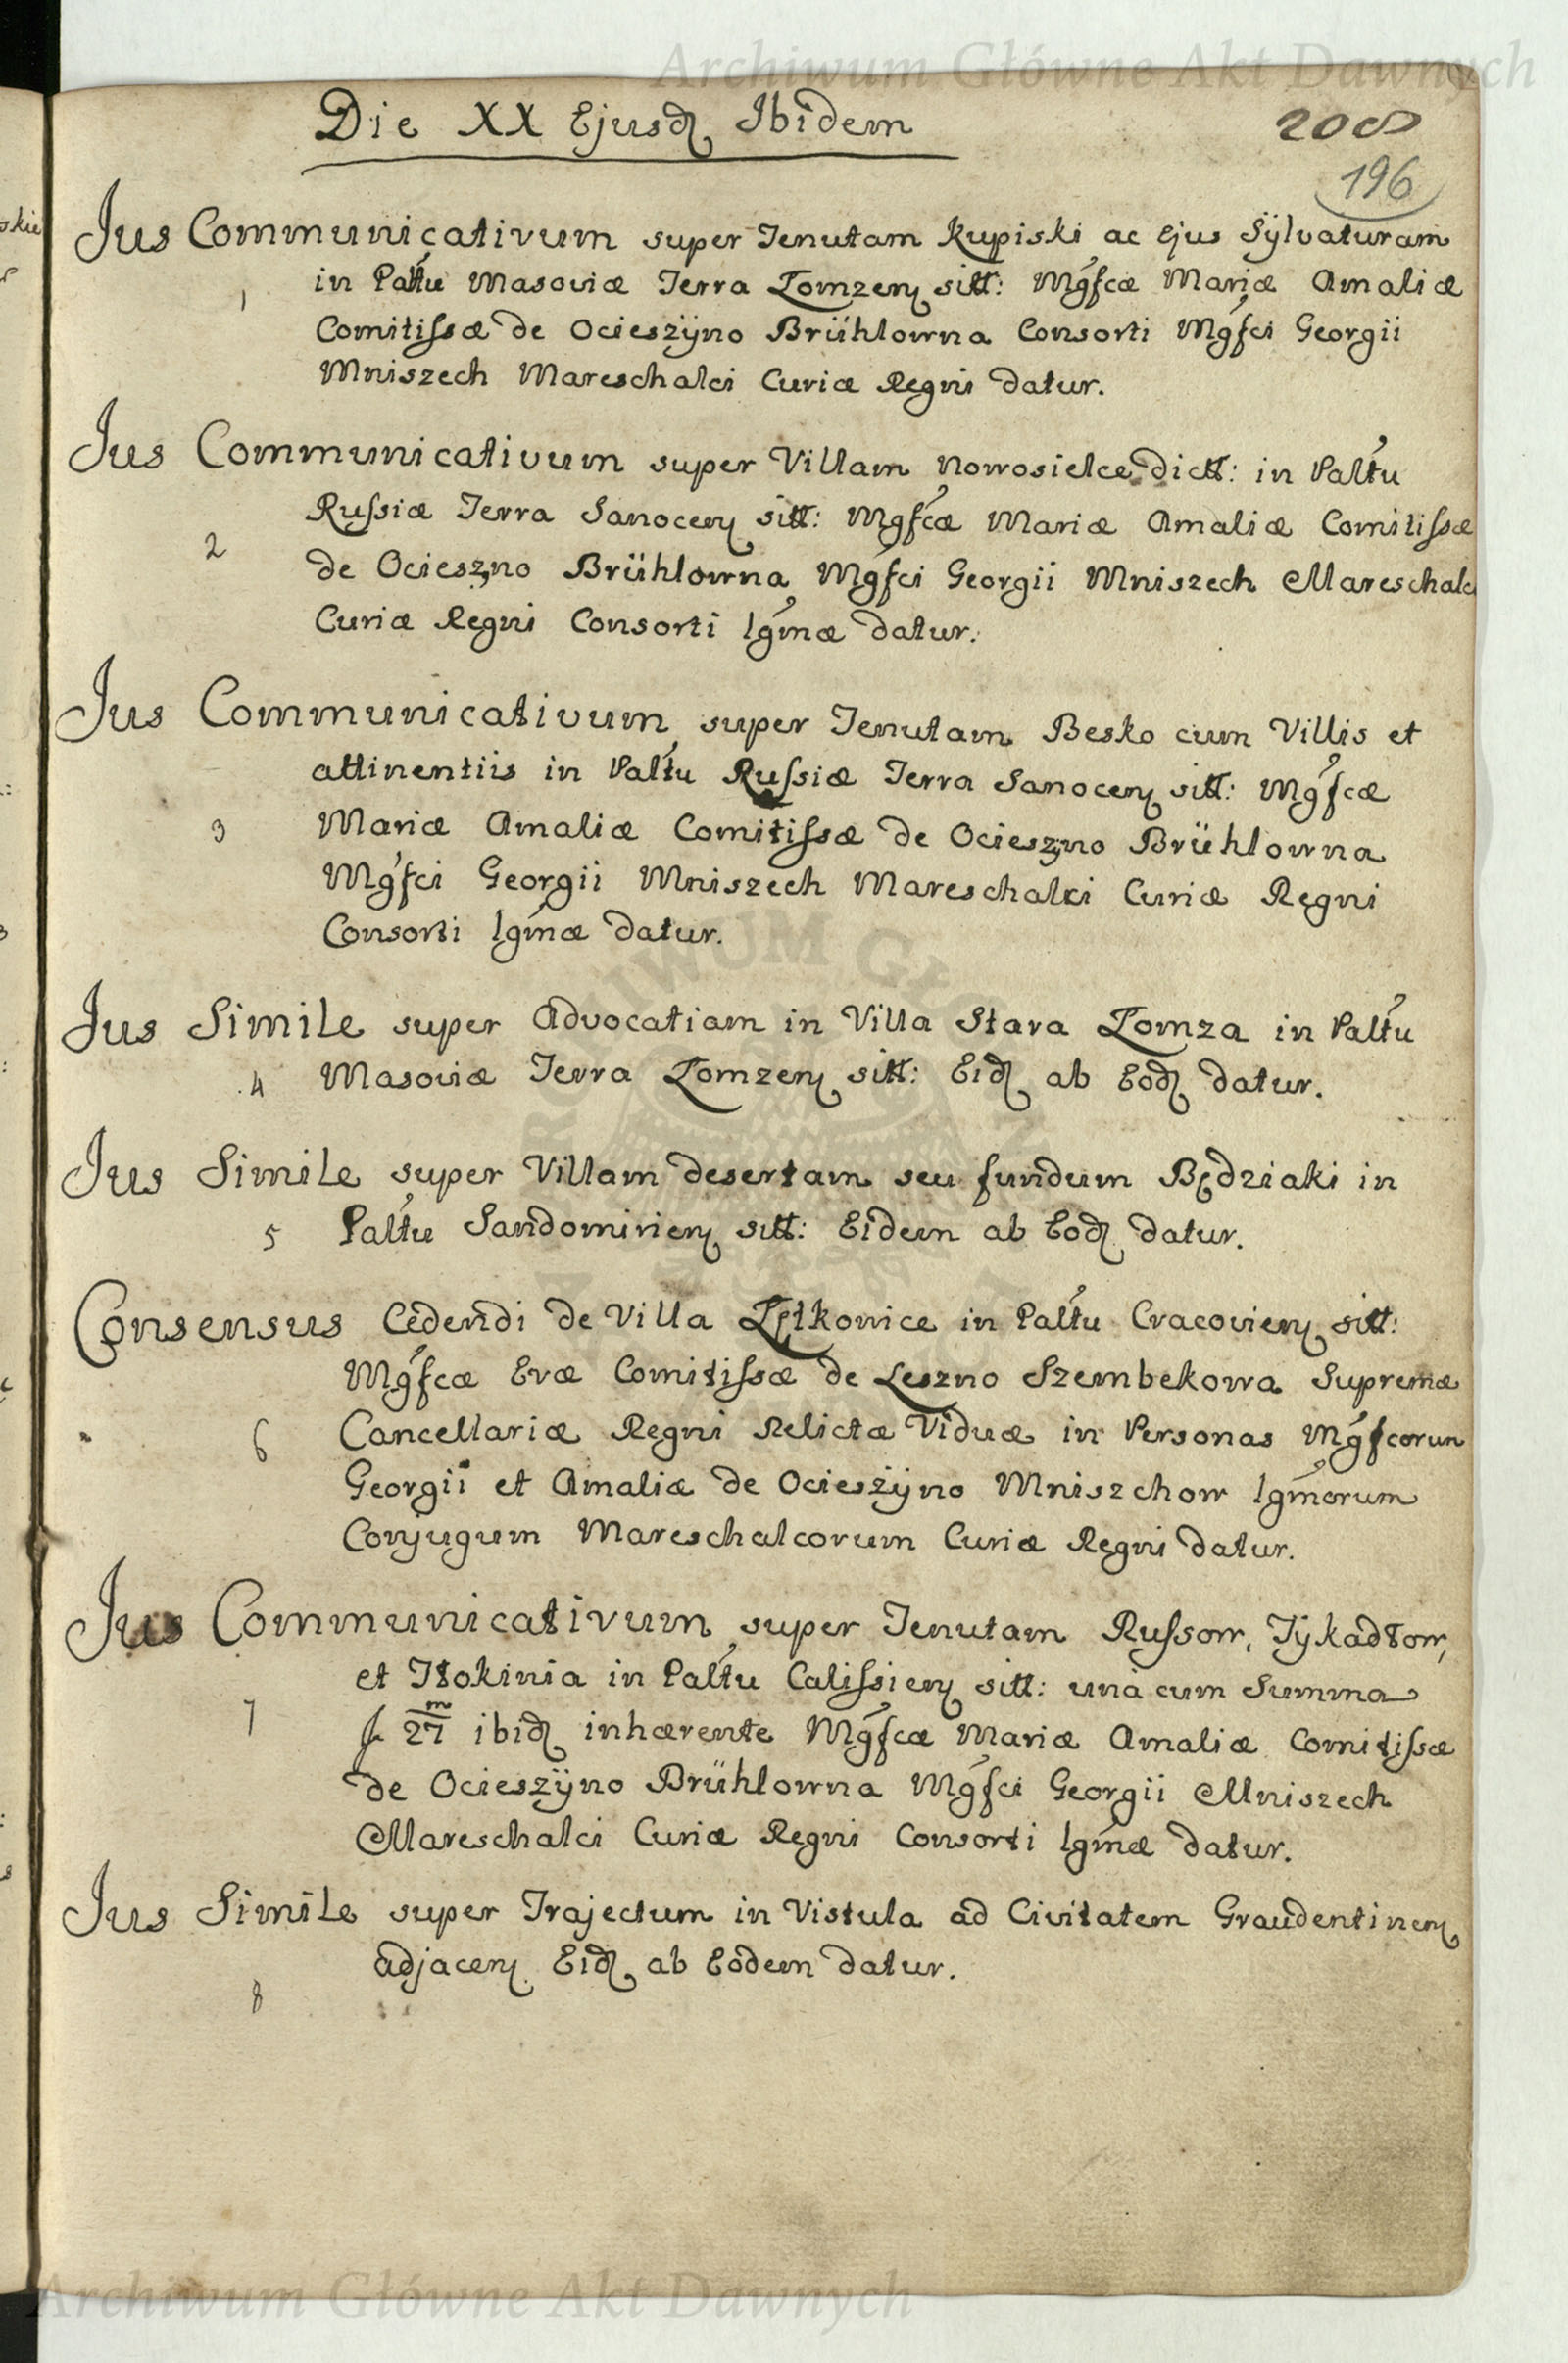 Archiwum Główne Akt Dawnych
Die XX Ejusd Ibidem
208
196
Jus Communicativum super Tenutam Kupiski ac Ejus Sÿlvaturam
1 in Paltu Masoviæ Terra Łomzen sitt: Mgfcæ Mariæ Amaliæ
Comitissæ de Ocieszÿno Brühlowna Consorti Mgfci Georgii
Mniszech Mareschalci Curiæ Regni datur.
Jus Communicativum super Villam Nowosielce dictt: in Paltu
Russiæ Terra Sanocen sitt: Mgfcæ Mariæ Amaliæ Comitissæ
2 de Ocieszno Brühlowna Mgfci Georgii Mniszech Mareschalci
Curiæ Regni Consorti lgmæ datur.
Jus Communicativum super Tenutam Besko cum Villis et
attinentiis in Paltu Russiæ Terra Sanocen sitt: Mgfcæ
3 Mariæ Amaliæ Comitissæ de Ocieszno Brühlowna
Mgfci Georgii Mniszech Mareschalci Curiæ Regni
Consorti lgmæ datur.
Jus Simile super Advocatiam in Villa Stara Łomza in Paltu
4 Masoviæ Terra Łomzen sitt: Eid ab Eod datur.
Jus Simile super Villam desertam seu fundum Będziaki in
5 Paltu Sandomirien sitt: Eidem ab Eod datur.
Consensus Cedendi de Villa Łętkowice in Paltu Cracovien sitt:
Mgfcæ Evæ Comitissæ de Leszno Szembekowa Supremæ
6 Cancellariæ Regni Relictæ Viduæ in Personas Mgfcorum
Georgii et Amaliæ de Ocieszÿno Mniszchow lgmorum
Conjugum Mareschalcorum Curiæ Regni datur.
Jus Communicativum super Tenutam Russow, Tÿkadłow,
et Tłokinia in Paltu Calissien sitt: una cum Summa
7 f 27m ibid inhærente Mgfcæ Mariæ Amaliæ Comitissæ
de Ocieszÿno Brühlowna Mgfci Georgii Mniszech
Mareschalci Curiæ Regni Consorti lgmæ datur.
Jus Simile super Trajectum in Vistula ad Civitatem Graudentinen
8 adjacen Eid ab Eodem datur.
Archiwum Główne Akt Dawnych